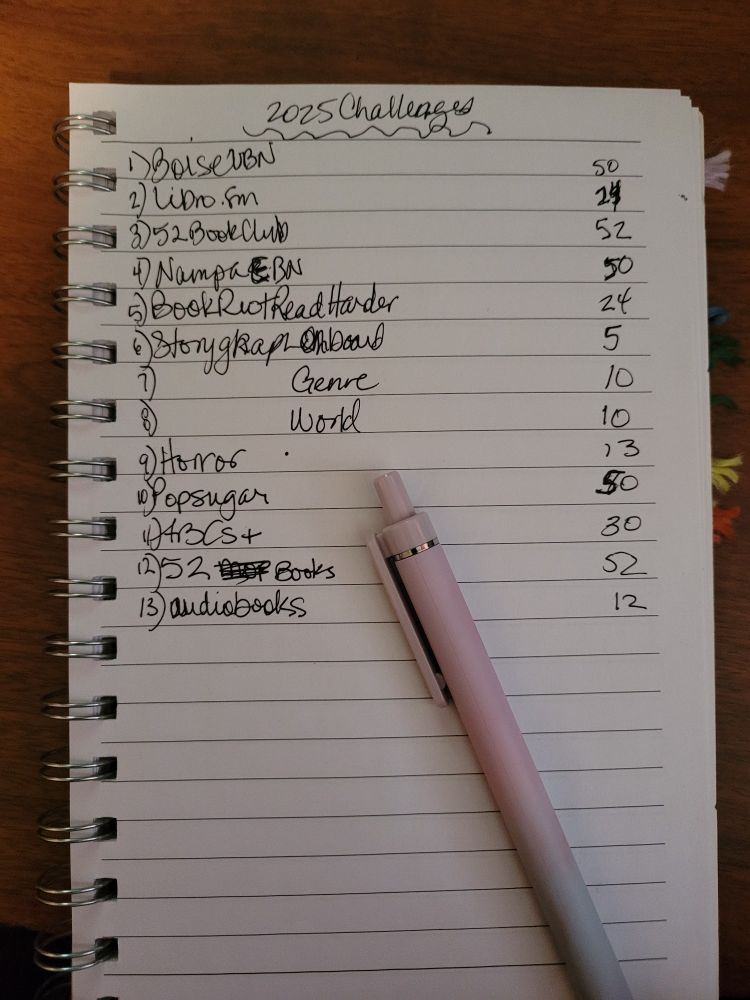 2025 Challenges
1) Boise UBN 50
2) Libro.fm 24
3) 52 Book Club 52
4) Nampa EBN 50
5) Book Riot Read Harder 24
6) Storygraph Onboard 5
7) Genre 10
8) World 10
9) Horror 13
10) Popsugar 50
11) ABCs+ 30
12) 52 Books 52
13) audiobooks 12